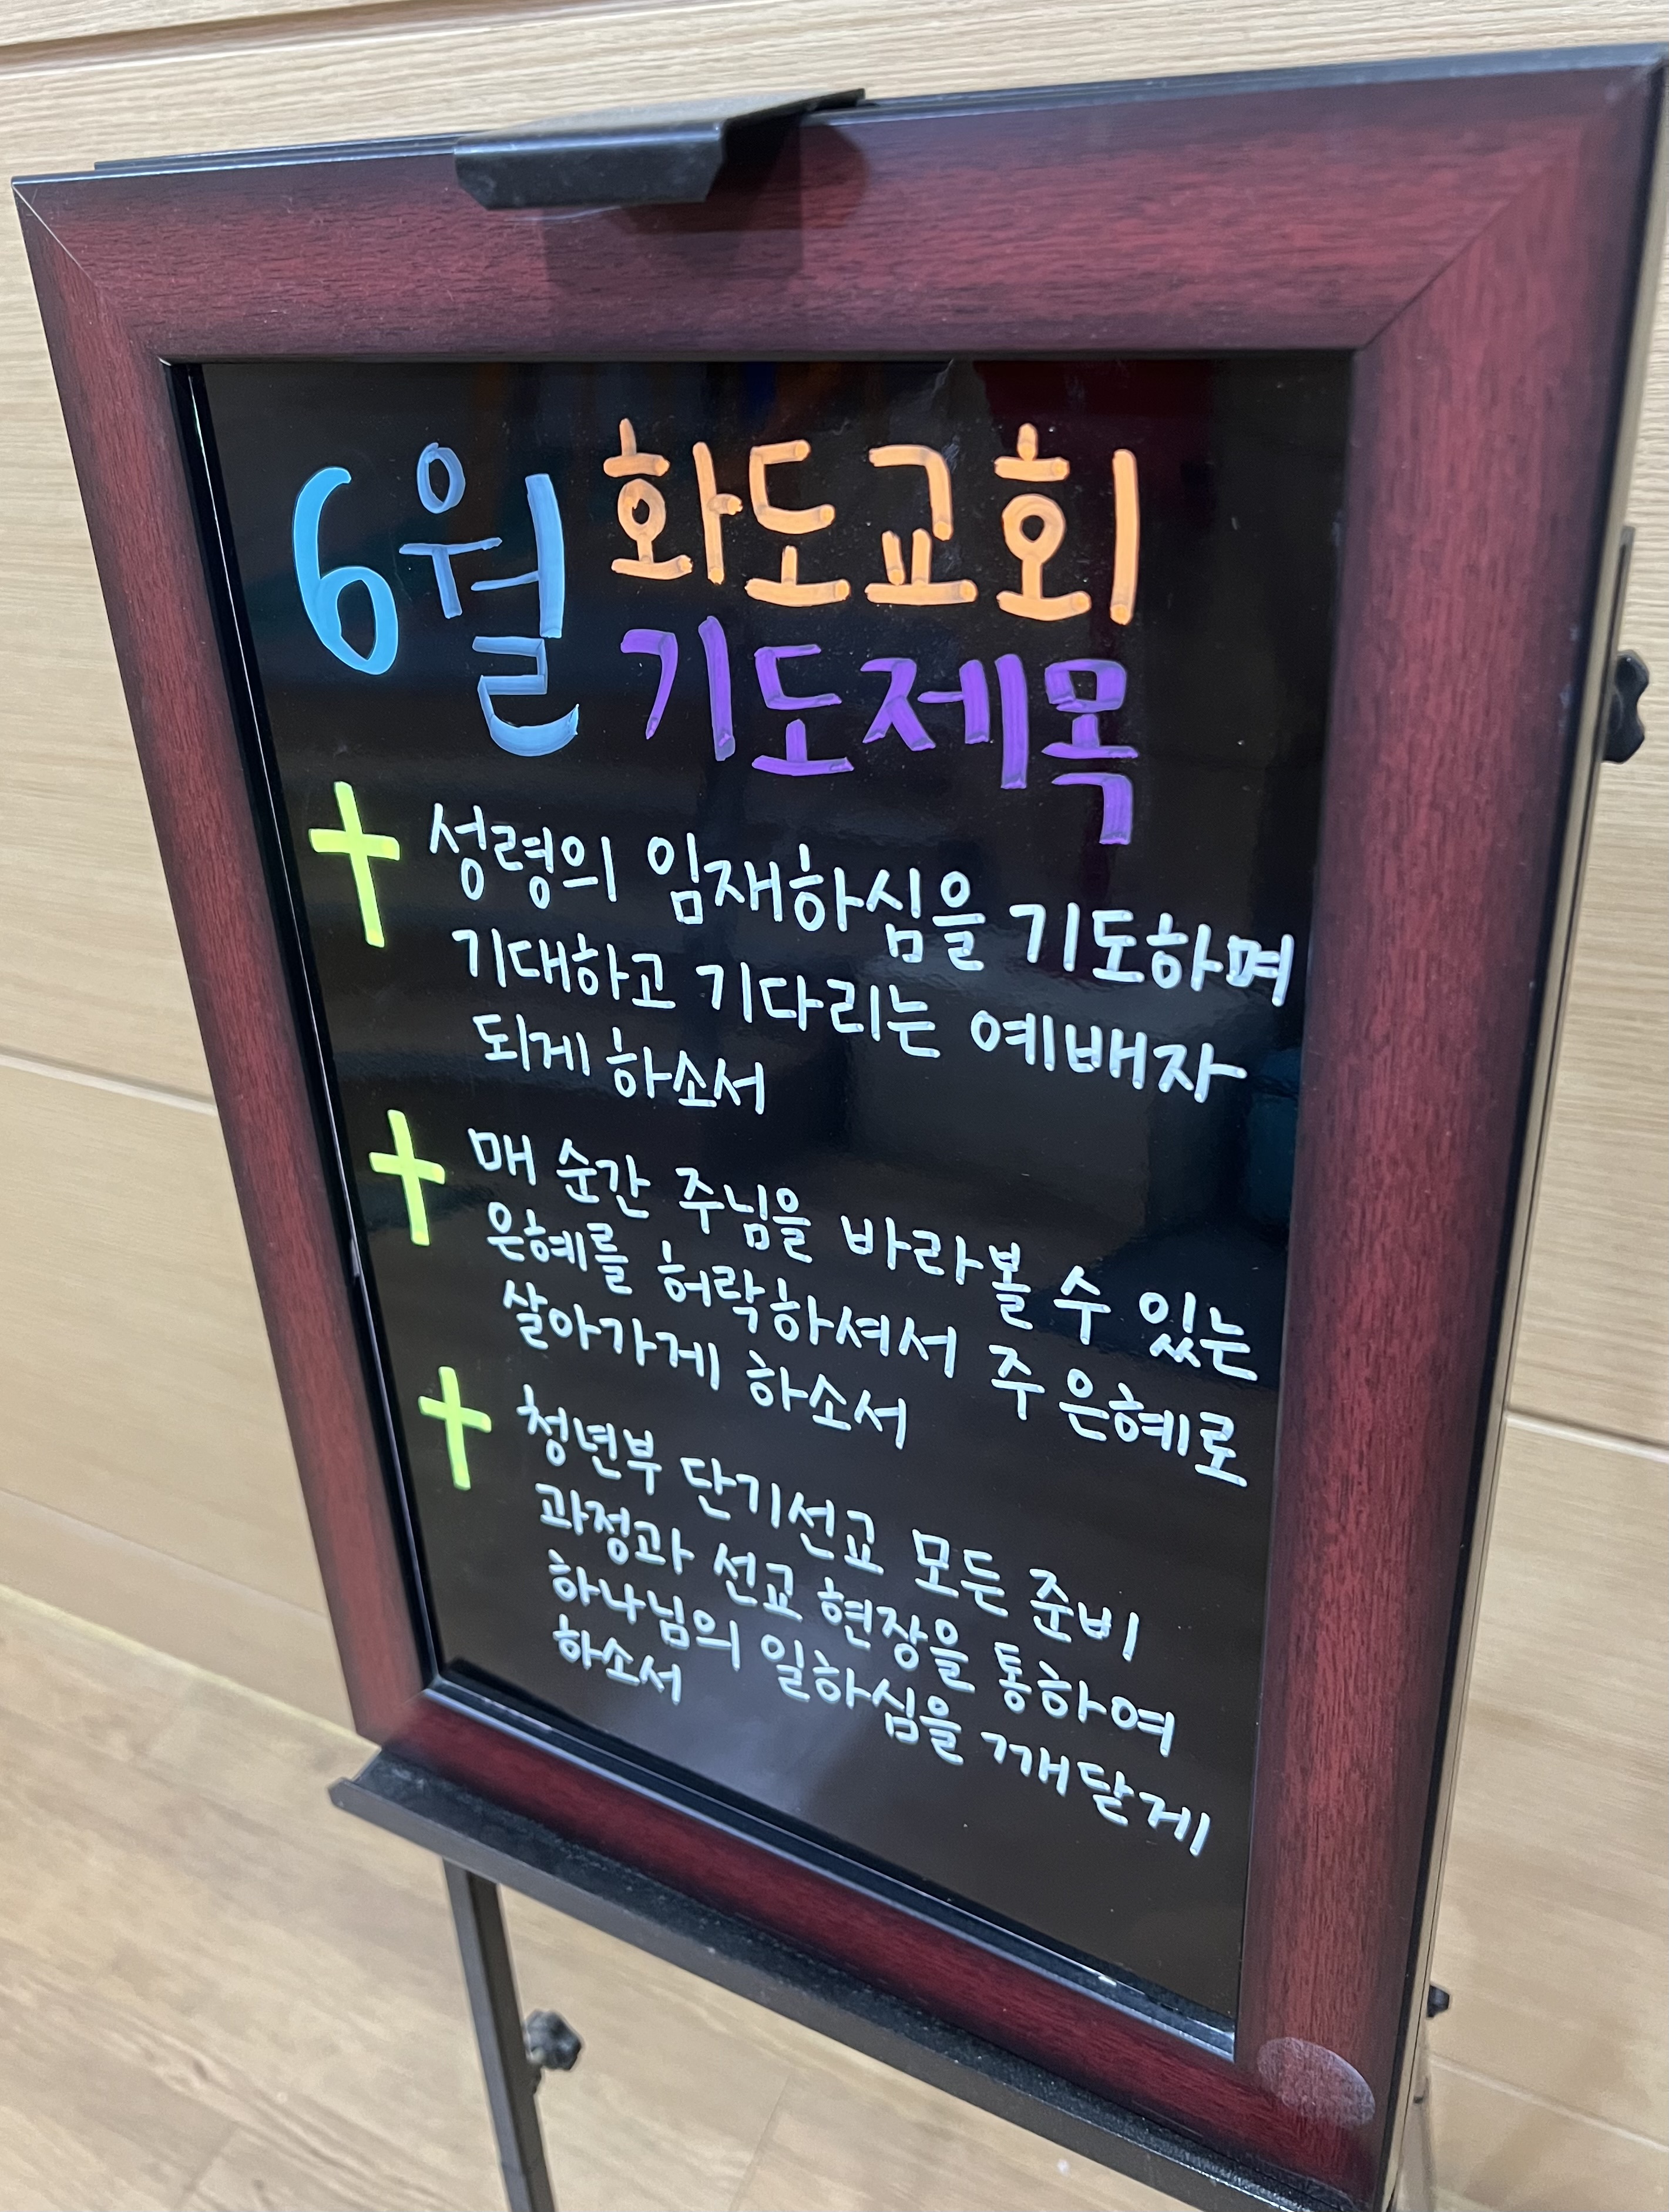 6월 화도교회
기도제목
성령의 임재하심을 기도하며
기대하고 기다리는 예배자
되게 하소서
매 순간 주님을 바라볼 수 있는
은혜를 허락하셔서 주 은혜로
살아가게 하소서
청년부 단기선교 모든 준비
과정과 선교 현장을 통하여
하나님의 일하심을 깨닫게
하소서